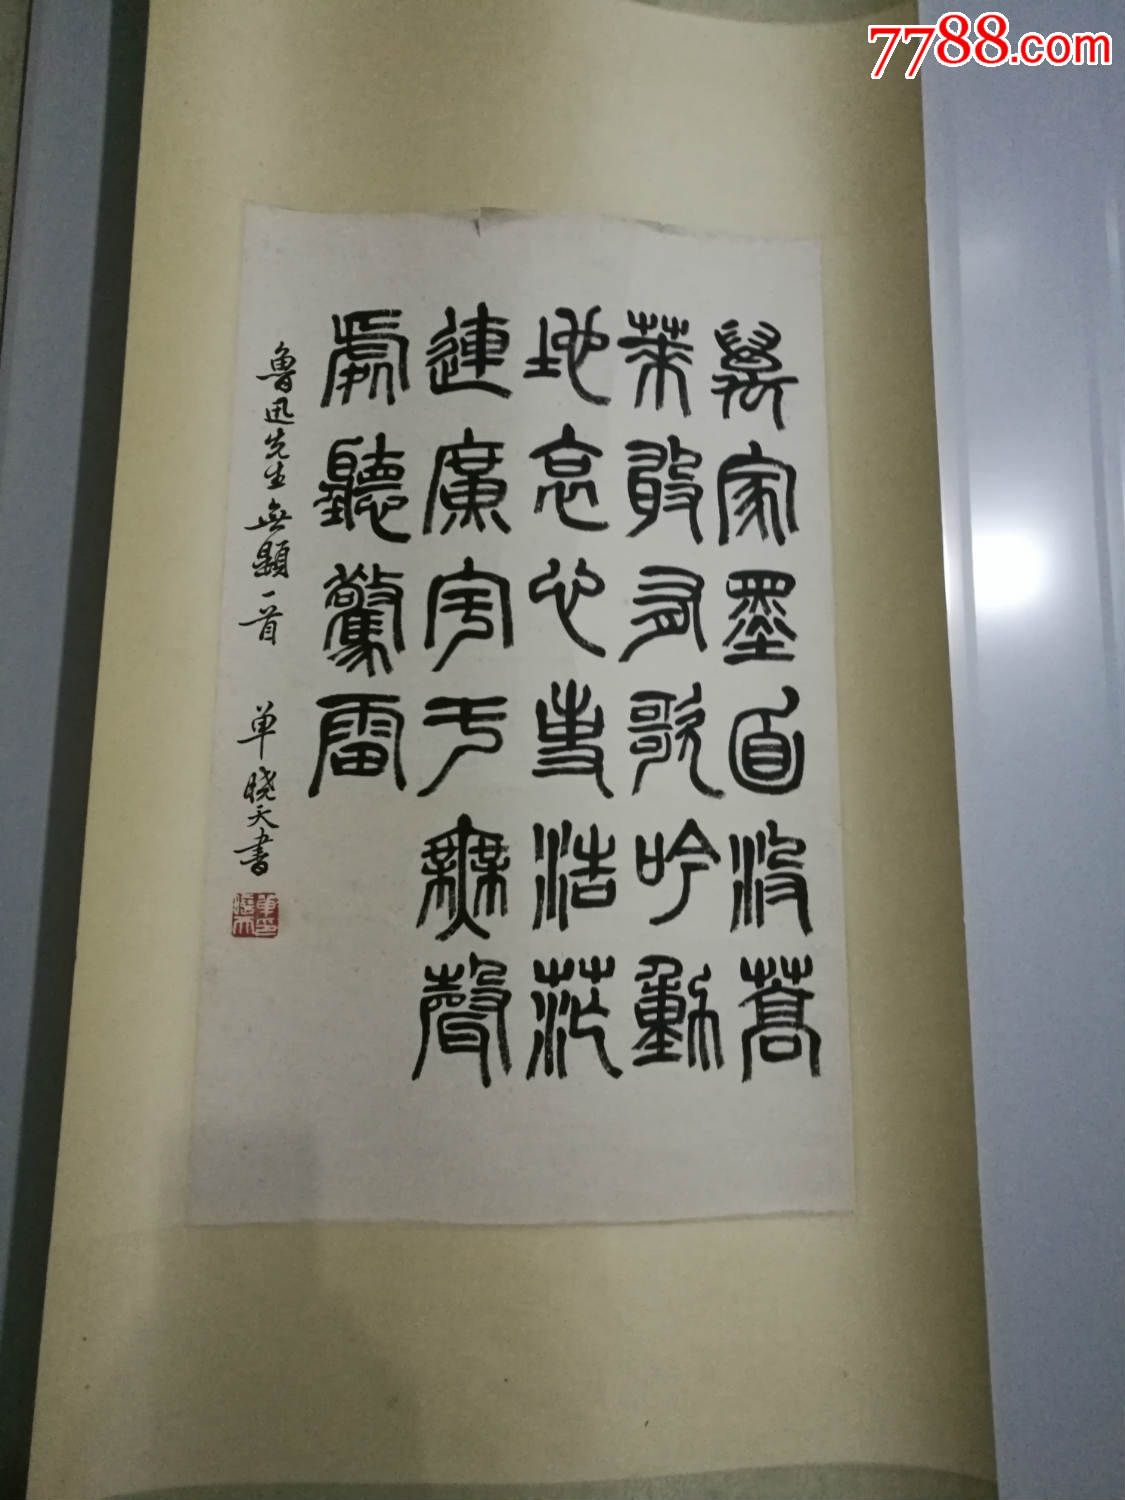 萬家墨面没蒿
萊敢有歌吟動
地哀心事浩茫
連廣宇于無聲
處聽驚雷
魯迅先生無題一首 单晓天書
7788.com